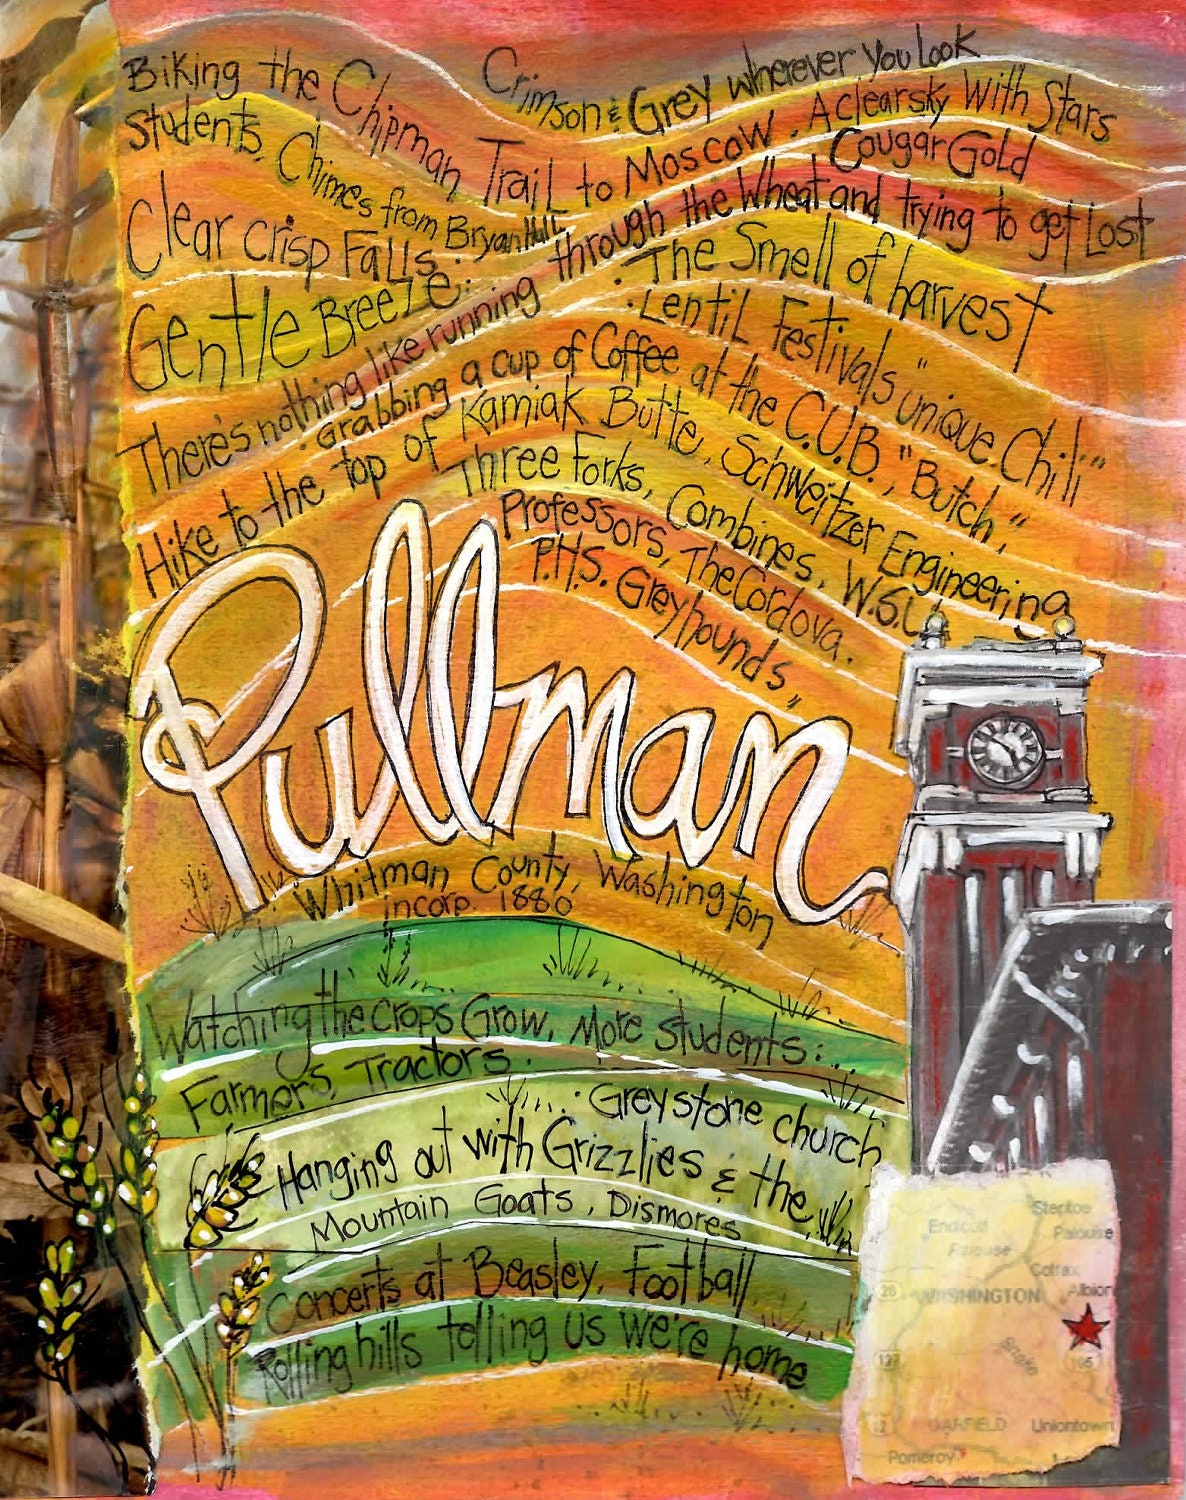 Crimson & Grey wherever you look
Biking the Chipman Trail to Moscow. A clear sky with Stars
Students, Chimes from Bryan Hall.
Cougar Gold
Clear crisp Falls.
Gentle Breeze.
There's nothing like running through the Wheat and trying to get Lost
The Smell of harvest
Lentil Festivals "unique Chili"
Grabbing a cup of Coffee at the C.U.B., "Butch,"
Hike to the top of Kamiak Butte, Schweitzer Engineering
Three Forks, Combines, W.S.U
Professors, The Cordova.
P.H.S. Greyhounds"
Pullman
Whitman County, Washington
incorp. 1880
Watching the crops Grow, More students:..
Farmers, Tractors.
Greystone church
Hanging out with Grizzlies & the
Mountain Goats, Dismores
Concerts at Beasley, Football
Rolling hills telling us we're home
Steptoe
Endicott
Palouse
Palouse
Colfax
26
WASHINGTON
Albion
127
Snake
195
12
GARFIELD
Uniontown
Pomeroy